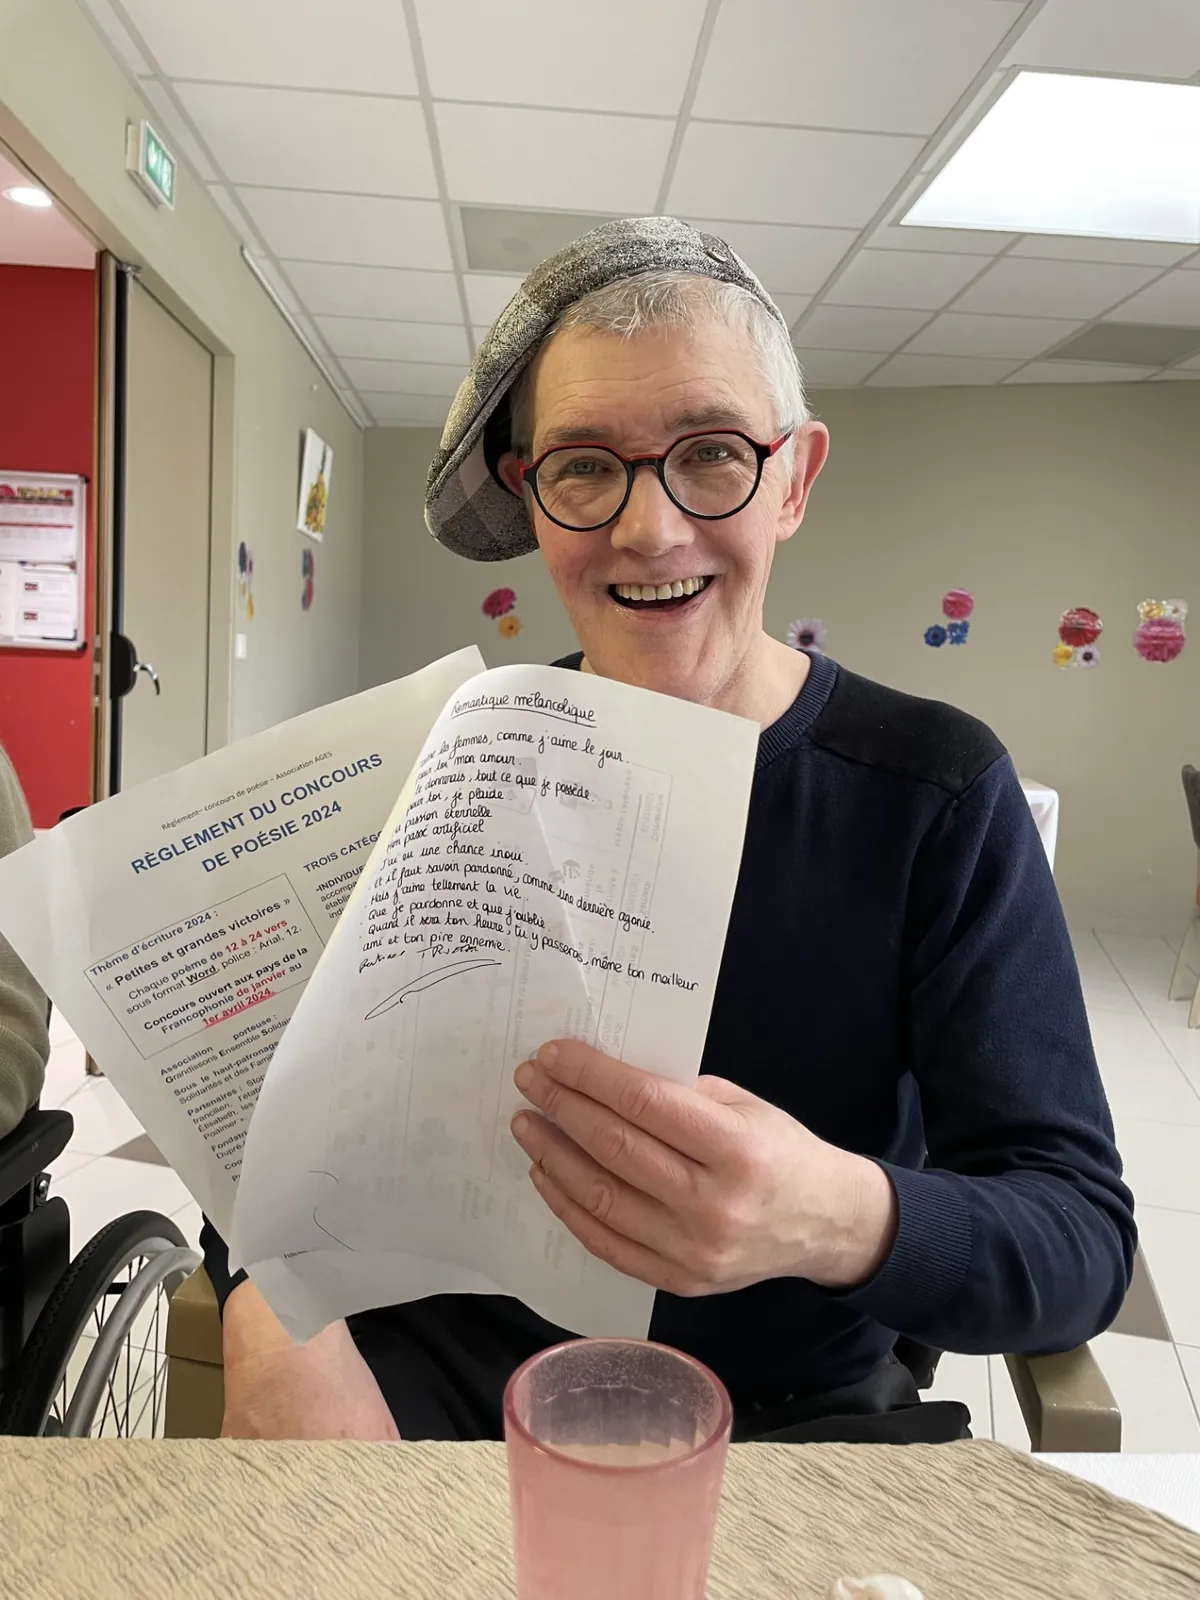 Règlement– concours de poésie – Association AGES
RÈGLEMENT DU CONCOURS
DE POÉSIE 2024
TROIS CATÉG
-INDIVIDUE
accompa
établi
indi
Thème d'écriture 2024 :
« Petites et grandes victoires »
Chaque poème de 12 à 24 vers
sous format Word, police : Arial, 12.
Concours ouvert aux pays de la
Francophonie de janvier au
1er avril 2024.
Association porteuse :
Grandissons Ensemble Solidai
Sous le haut-patronage
Solidarités et des Famil
Partenaires : Stop
francilien, l'étab
Élisabeth, les
Poâimer ».
Fondatri
Dupré
Coo
Romantique mélancolique
les femmes, comme j'aime le jour.
pour toi mon amour.
donnerais, tout ce que je possède.
pour toi, je plaide.
passion éternelle
passé artificiel
J'ai eu une chance inoui.
Et il faut savoir pardonné, comme une dernière agonie.
Mais j'aime tellement la vie.
Que je pardonne et que j'oublie.
Quand il sera ton heure, tu y passeras, même ton meilleur
ami et ton pire ennemie.